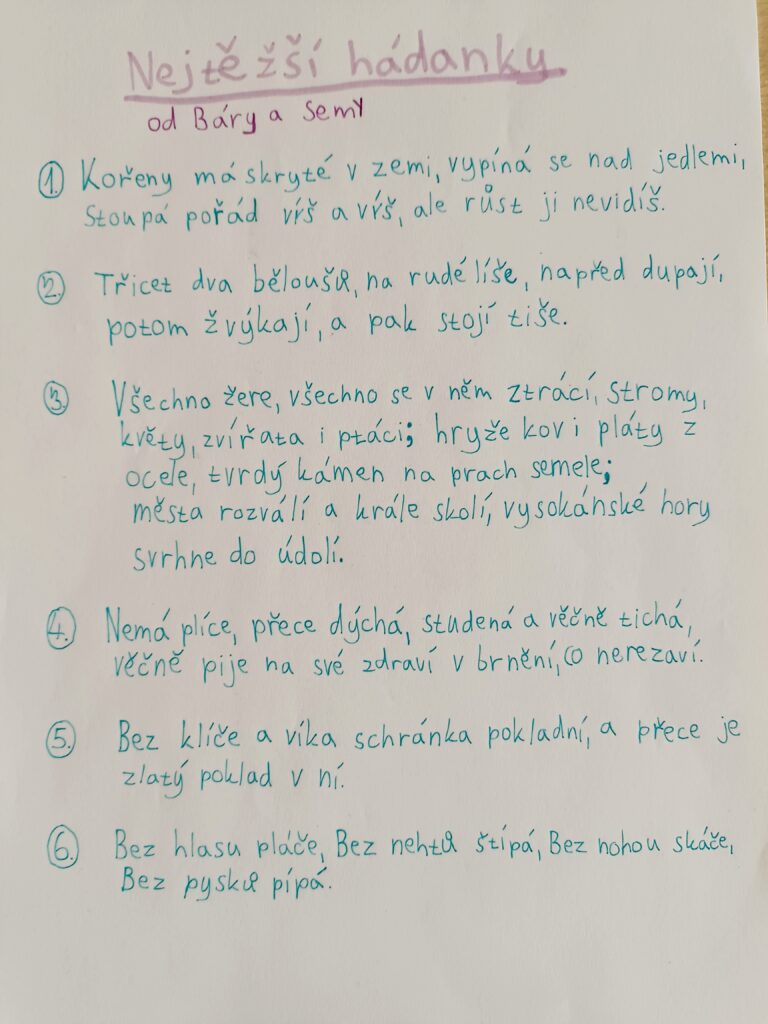 Nejtěžší hádanky
od Báry a Semy
1. Kořeny má skryté v zemi, vypíná se nad jedlemi,
Stoupá pořád vŕš a vŕš, ale růst ji nevidíš.
2. Třicet dva běloušů, na rudé líše, napřed dupají,
potom žvýkají, a pak stojí tiše.
3. Všechno žere, všechno se v něm ztrácí, stromy,
květy, zvířata i ptáci; hryže kov i pláty z
ocele, tvrdý kámen na prach semele;
města rozválí a krále skolí, vysokánské hory
svrhne do údolí.
4. Nemá plíce, přece dýchá, studená a věčně tichá,
věčně pije na své zdraví v brnění, co nerezaví.
5. Bez klíče a víka schránka pokladní, a přece je
zlatý poklad v ní.
6. Bez hlasu pláče, Bez nehtů štípá, Bez nohou skáče,
Bez pysků pípá.